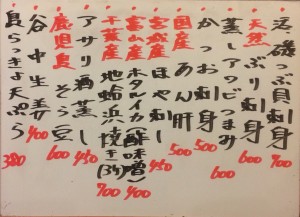 活磯つぶ貝刺身 700
天然ぶり刺身 600
蒸しアワビつまみ
かつお刺身 500
国産あん肝 500
宮城産ほや刺し
富山産ホタルイカ(酢味噌) 400
千葉産地蛤浜焼き(3ヶ) 700
アサリ酒蒸し 450
鹿児島そら豆 600
谷中生姜 400
島らっきょ天ぷら 380